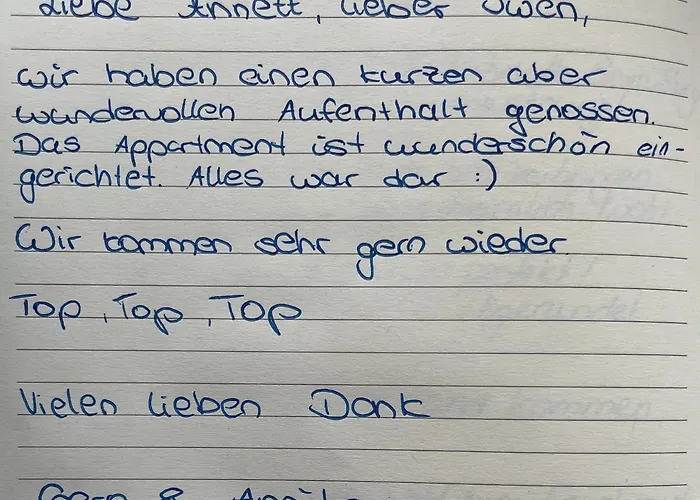 Liebe Annett, lieber Owen,
wir haben einen kurzen aber
wundervollen Aufenthalt genossen.
Das Appartment ist wunderschön ein-
gerichtet. Alles war dar :)
Wir kommen sehr gern wieder.
Top, Top, Top
Vielen lieben Dank
&